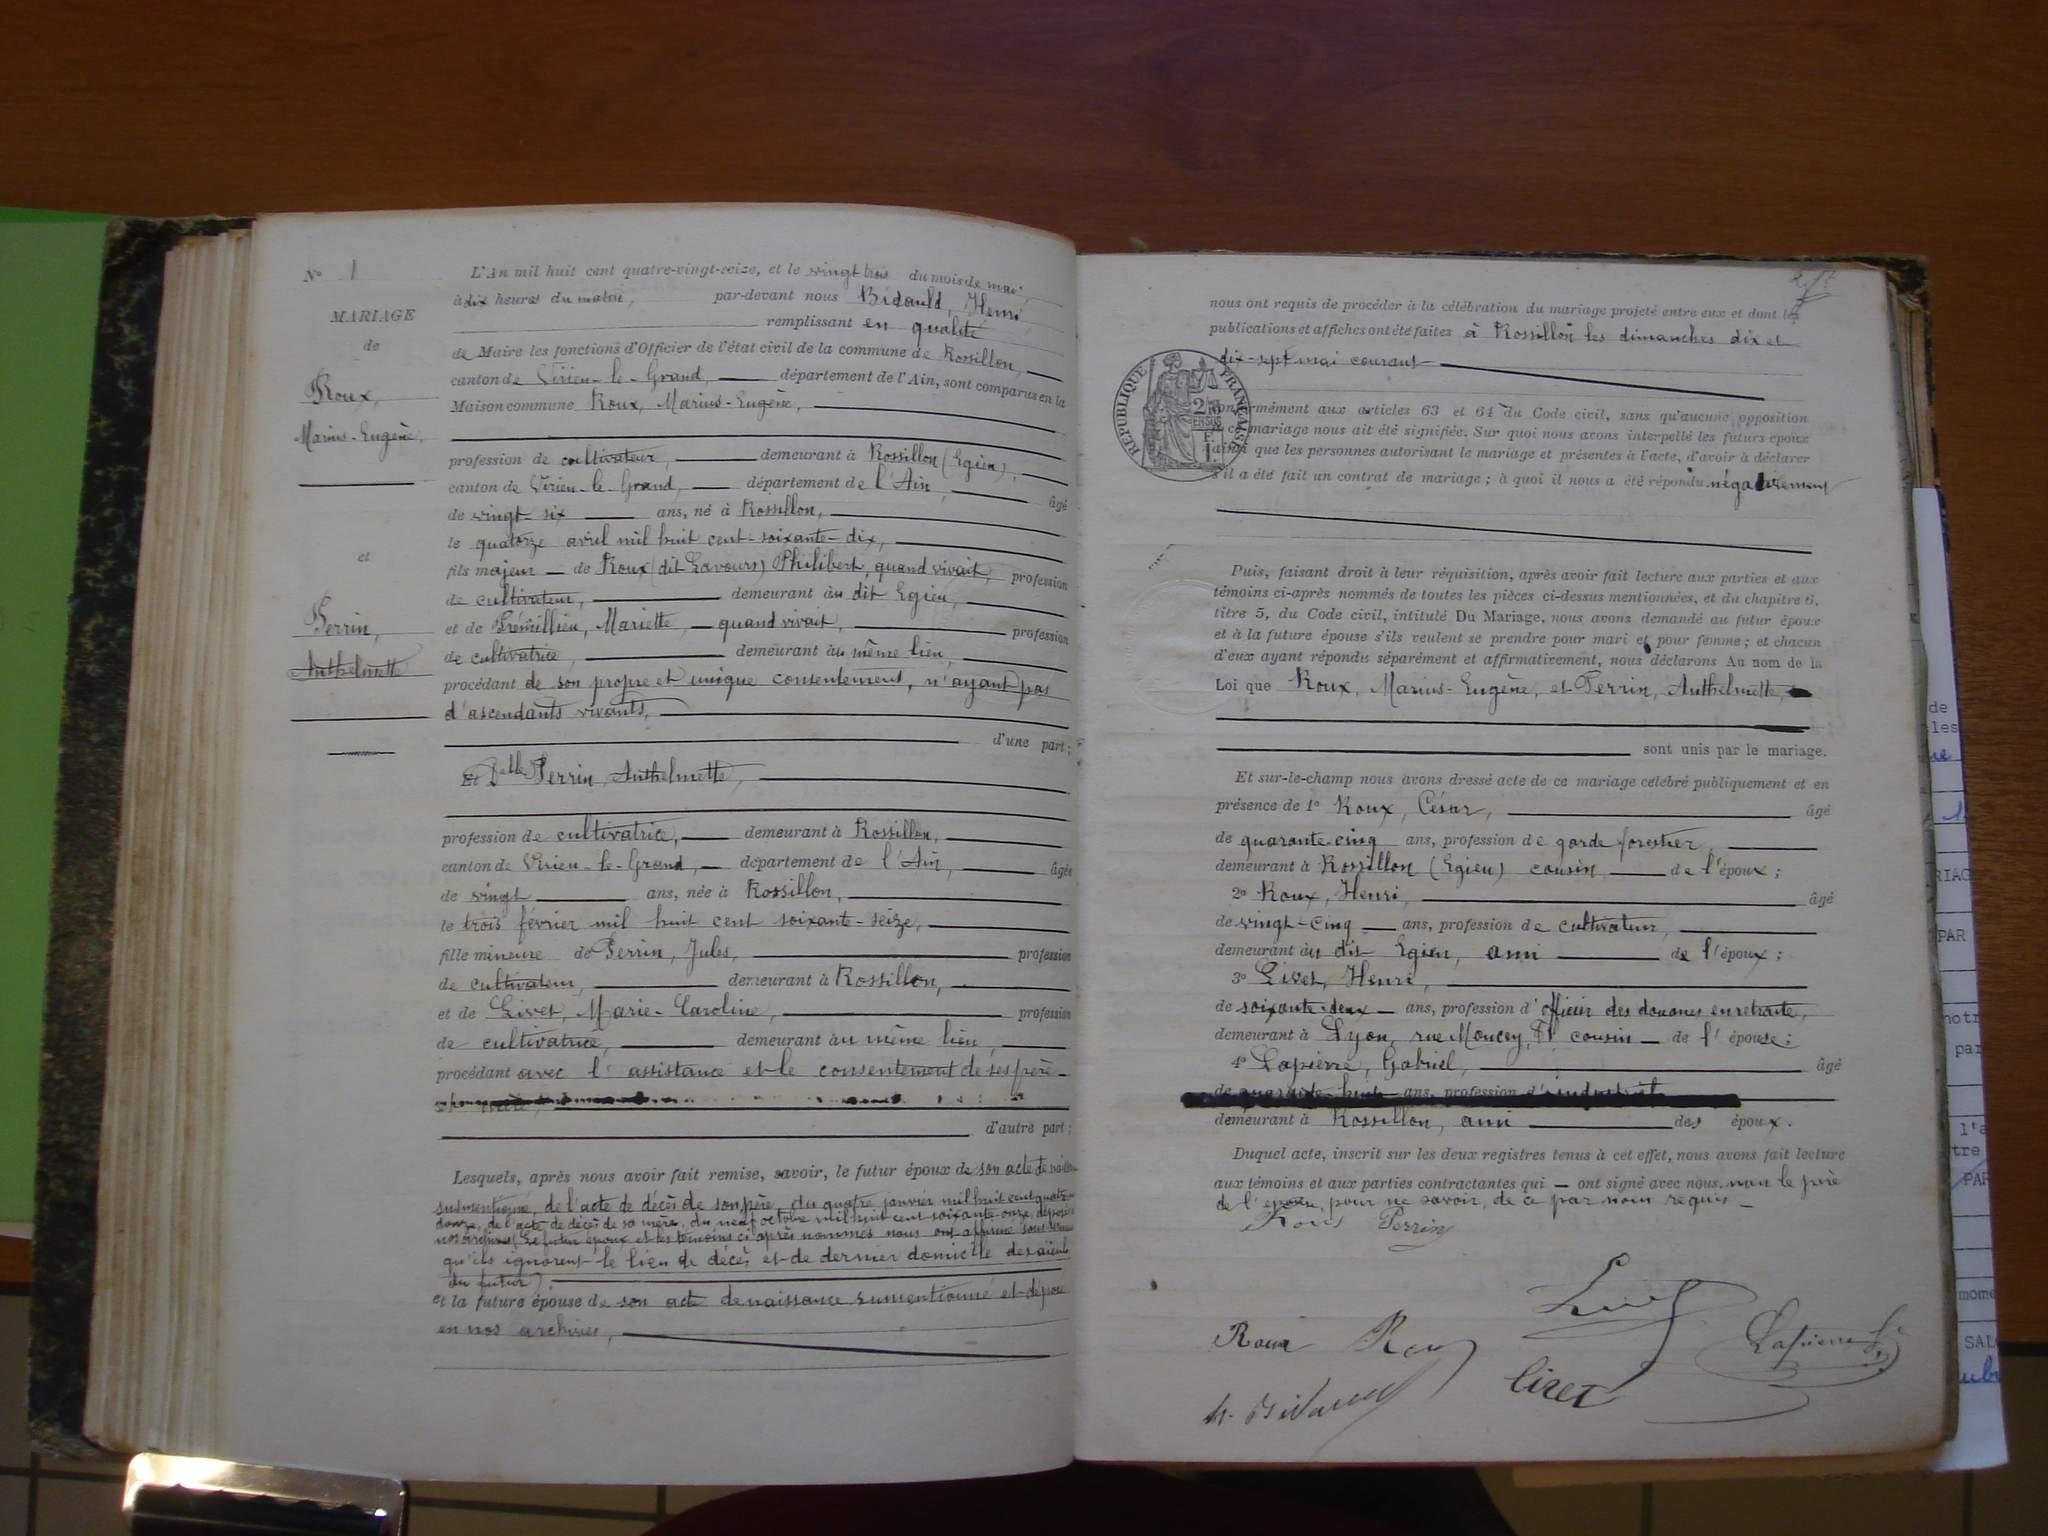 N° 1
MARIAGE
de
Roux,
Marius-Eugène,
et
Perrin,
Anthelmette
L'An mil huit cent quatre-vingt-seize, et le vingt trois du mois de mai,
à dix heures du matin, par-devant nous Bidauld, Henri
remplissant en qualité
de Maire les fonctions d'Officier de l'état civil de la commune de Rossillon,
canton de Virieu-le-Grand, département de l'Ain, sont comparus en la
Maison commune Roux, Marius-Eugène,
profession de cultivateur, demeurant à Rossillon (Egieu),
canton de Virieu-le-Grand, département de l'Ain, âgé
de vingt-six ans, né à Rossillon,
le quatorze avril mil huit cent-soixante-dix,
fils majeur de Roux (dit Lavours) Philibert, quand vivait, profession
de cultivateur, demeurant àu dit Egieu,
et de Mariette, quand vivait, profession
de cultivatrice, demeurant àu même lieu,
procédant de son propre et unique consentement, n'ayant pas
d'ascendants vivants,
d'une part;
Et Delle Perrin, Anthelmette,
profession de cultivatrice, demeurant à Rossillon,
canton de Virieu-le-Grand, département de l'Ain, âgée
de vingt ans, née à Rossillon,
le trois février mil huit cent soixante-seize,
fille mineure de Perrin, Jules, profession
de cultivateur, demeurant à Rossillon,
et de Livet, Marie-Caroline, profession
de cultivatrice, demeurant àu même lieu,
procédant avec l'assistance et le consentement de ses père
et mère,
d'autre part;
Lesquels, après nous avoir fait remise, savoir, le futur époux de son acte de
susmentionné, de l'acte de décès de son père, du quatre janvier mil huit cent quatre
de l'acte de décès de sa mère, du neuf octobre mil huit cent soixante onze,
nos archives (Le futur époux et les témoins ci après nommés nous ont affirmé sous
qu'ils ignorent le lieu de décès et de dernier domicile des aieuls
du futur)
et la future épouse de son acte de naissance susmentionné et déposé
en nos archives,
nous ont requis de procéder à la célébration du mariage projeté entre eux et dont les
publications et affiches ont été faites à Rossillon les dimanches dix et
dix-sept mai courant
RÉPUBLIQUE FRANÇAISE
conformément aux articles 63 et 64 du Code civil, sans qu'aucune opposition
à ce mariage nous ait été signifiée. Sur quoi nous avons interpellé les futurs époux
ainsi que les personnes autorisant le mariage et présentes à l'acte, d'avoir à déclarer
s'il a été fait un contrat de mariage; à quoi il nous a été répondu négativement
Puis, faisant droit à leur réquisition, après avoir fait lecture aux parties et aux
témoins ci-après nommés de toutes les pièces ci-dessus mentionnées, et du chapitre 6,
titre 5, du Code civil, intitulé Du Mariage, nous avons demandé au futur époux
et à la future épouse s'ils veulent se prendre pour mari et pour femme; et chacun
d'eux ayant répondu séparément et affirmativement, nous déclarons Au nom de la
Loi que Roux, Marius-Eugène, et Perrin, Anthelmette,
sont unis par le mariage.
Et sur-le-champ nous avons dressé acte de ce mariage célébré publiquement et en
présence de 1° Roux, César, âgé
de quarante cinq ans, profession de garde forestier
demeurant à Rossillon (Egieu) cousin de l'époux;
2° Roux, Henri, âgé
de vingt-cinq ans, profession de cultivateur,
demeurant àu dit Egieu, ami de l'époux;
3° Livet, Henri,
de soixante-deux ans, profession d'officier des douanes en retraite,
demeurant à Lyon, rue Moncey, cousin de l'épouse;
4° Lapierre, Gabriel, âgé
de quarante-huit ans, profession d'industriel
demeurant à Rossillon, ami des époux.
Duquel acte, inscrit sur les deux registres tenus à cet effet, nous avons fait lecture
aux témoins et aux parties contractantes qui ont signé avec nous, non le père
de l'épouse, pour ne savoir, de ce par nous requis
Roux Perrin
Livet
Roux Roux Lapierre G.
H. Bidauld Livet